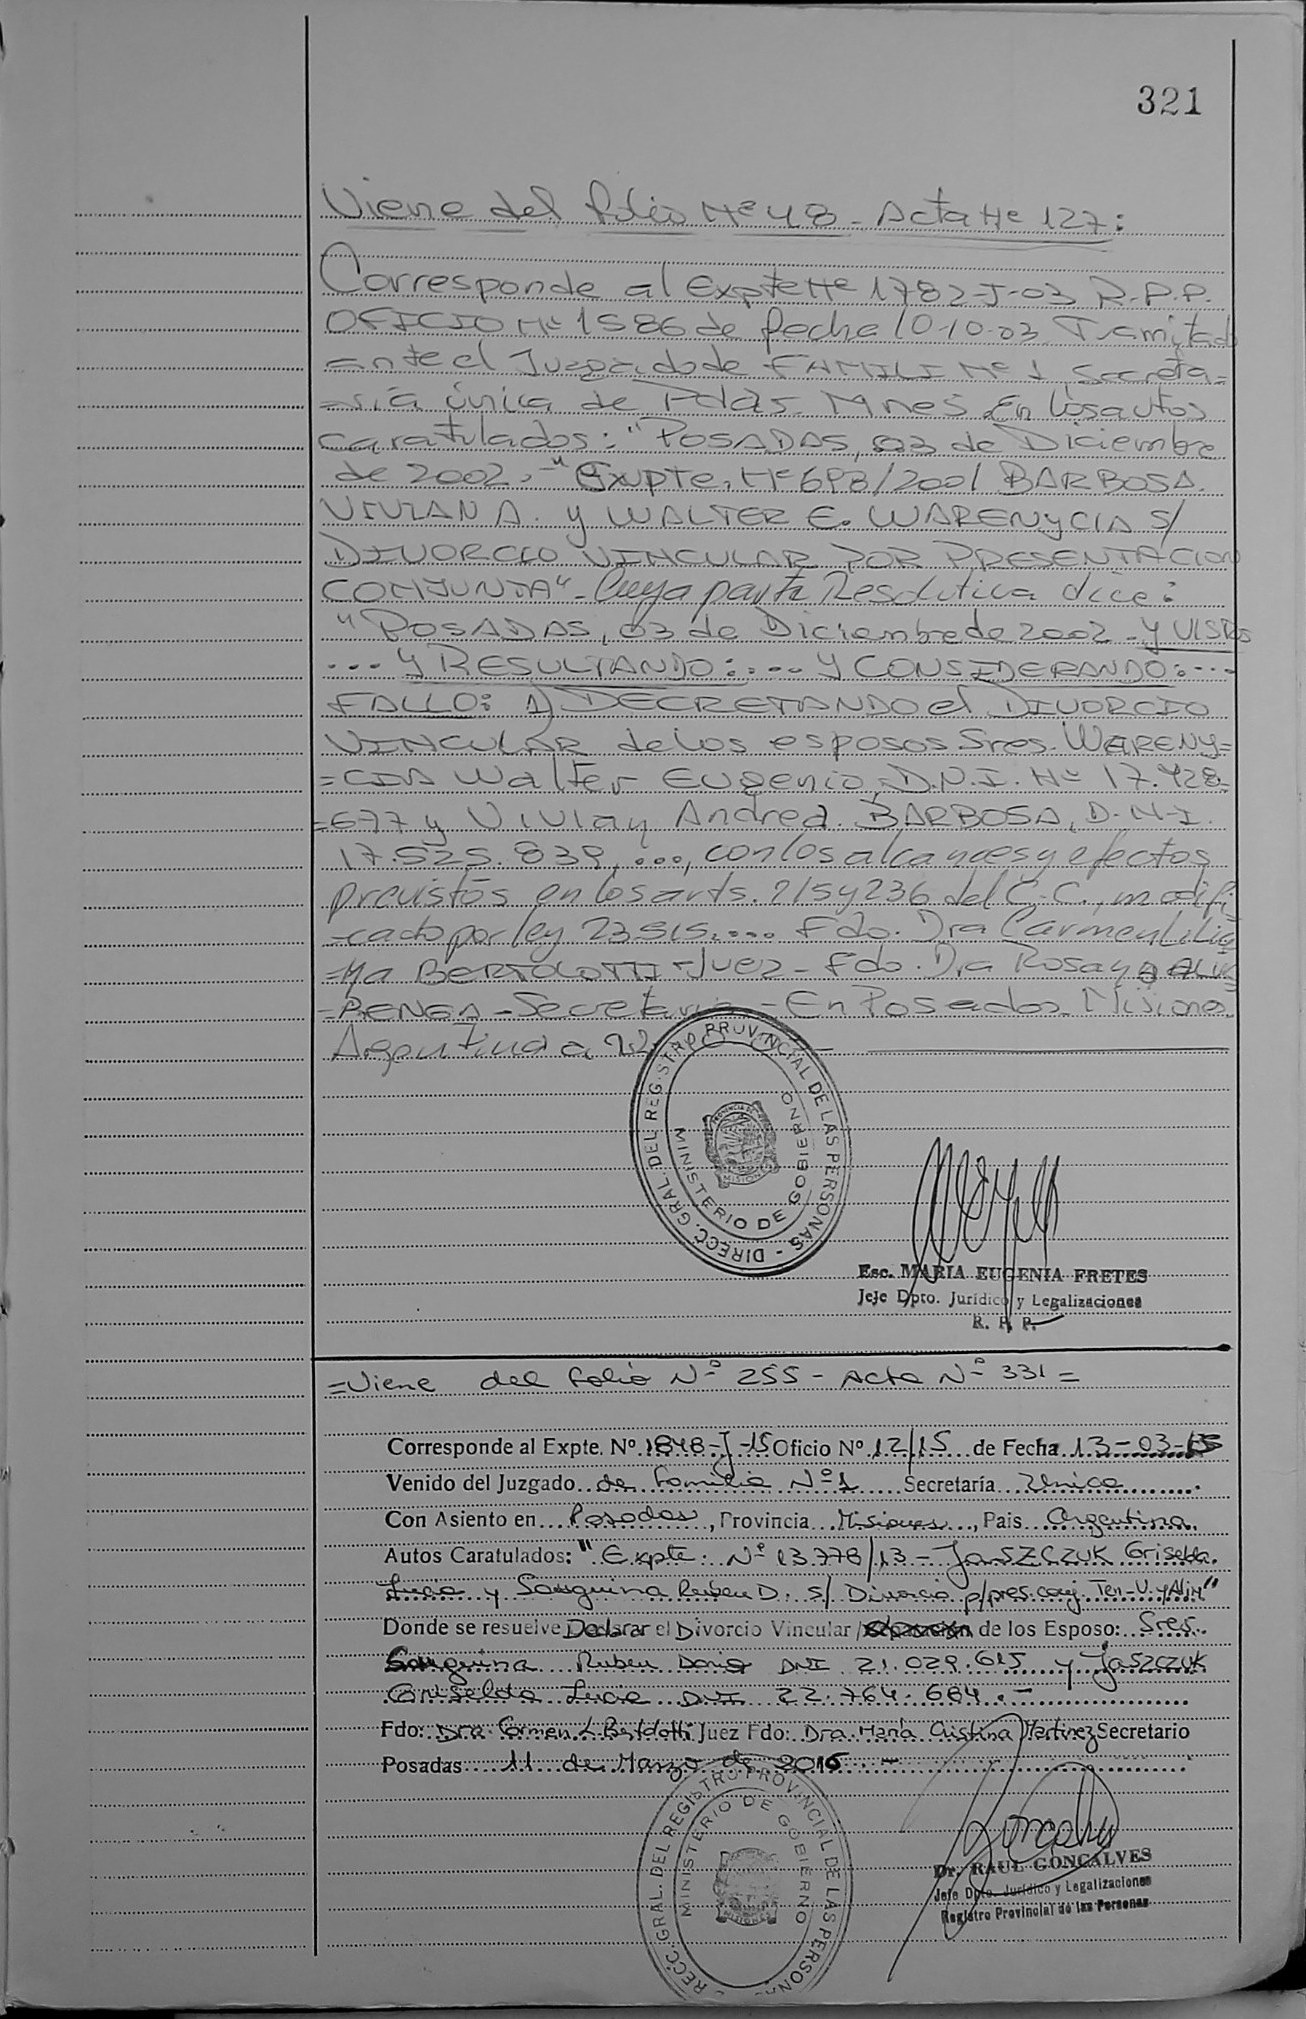 321
Viene del folio Nº 48 - Acta Nº 127:
Corresponde al Expte Nº 1782-J-03 R.P.P.
OFICIO Nº 1586 de fecha 10-10-03 Tramitado
ante el Juzgado de FAMILI Nº 1, Secreta=
=ria única de Pdas. Mnes En los autos
caratulados: "POSADAS, 03 de Diciembre
de 2002.-" Expte. Nº 698/2001 BARBOSA
VIVIAN A. y WALTER E. WARENYCIA S/
DIVORCIO VINCULAR POR PRESENTACION
CONJUNTA" - Cuya parte Resolutiva dice:
"POSADAS, 03 de Diciembre de 2002 - Y VISTOS
... Y RESULTANDO: .... Y CONSIDERANDO: ...
FALLO: 1) DECRETANDO el DIVORCIO
VINCULAR de los esposos Sres. WARENY=
=CIA Walter Eugenio, D.N.I. Nº 17.428.
=677 y Vivian Andrea BARBOSA, D.N.I.
17.525.839, ..., con los alcances y efectos
previstos en los arts. 215 y 236 del C.C., modifi
=cado por ley 23515. .... Fdo. Dra Carmen Lilia
=na BERTOLOTTI - Juez - Fdo. Dra Rosanna
- Secretaria - En Posadas Misiones
Argentina a
DIRECC. GRAL. DEL REGISTRO PROVINCIAL DE LAS PERSONAS -
MINISTERIO DE GOBIERNO
Esc. MARIA EUGENIA FRETES
Jefe Dpto. Jurídico y Legalizaciones
R. P. P.
=Viene del folio Nº 255 - Acta Nº 331=
Corresponde al Expte. Nº 1848-J-15 Oficio Nº 12/15 de Fecha 13-03-15
Venido del Juzgado de Familia Nº 1 Secretaría Unica
Con Asiento en Posadas, Provincia Misiones, Pais Argentina.
Autos Caratulados: "Expte: Nº 13.778/13 - JASZCZUK Griselda
Lucia y Sanguina Ruben D. s/ Divorcio p/pres. conj. Ten-V. y Alim"
Donde se resuelve Declarar el Divorcio Vincular / de los Esposo: Sres.
Sanguina Ruben Dario DNI 21.029.615 y JASZCZUK
Griselda Lucia DNI 22.764.684.-
Fdo: Dra. Carmen L. Bertolotti Juez Fdo: Dra. María Cristina Martinez Secretario
Posadas 11 de Marzo de 2016 -
DIRECC. GRAL. DEL REGISTRO PROVINCIAL DE LAS PERSONAS
MINISTERIO DE GOBIERNO
Dr. RAUL GONCALVES
Jefe Dpto. Jurídico y Legalizaciones
Registro Provincial de las Personas